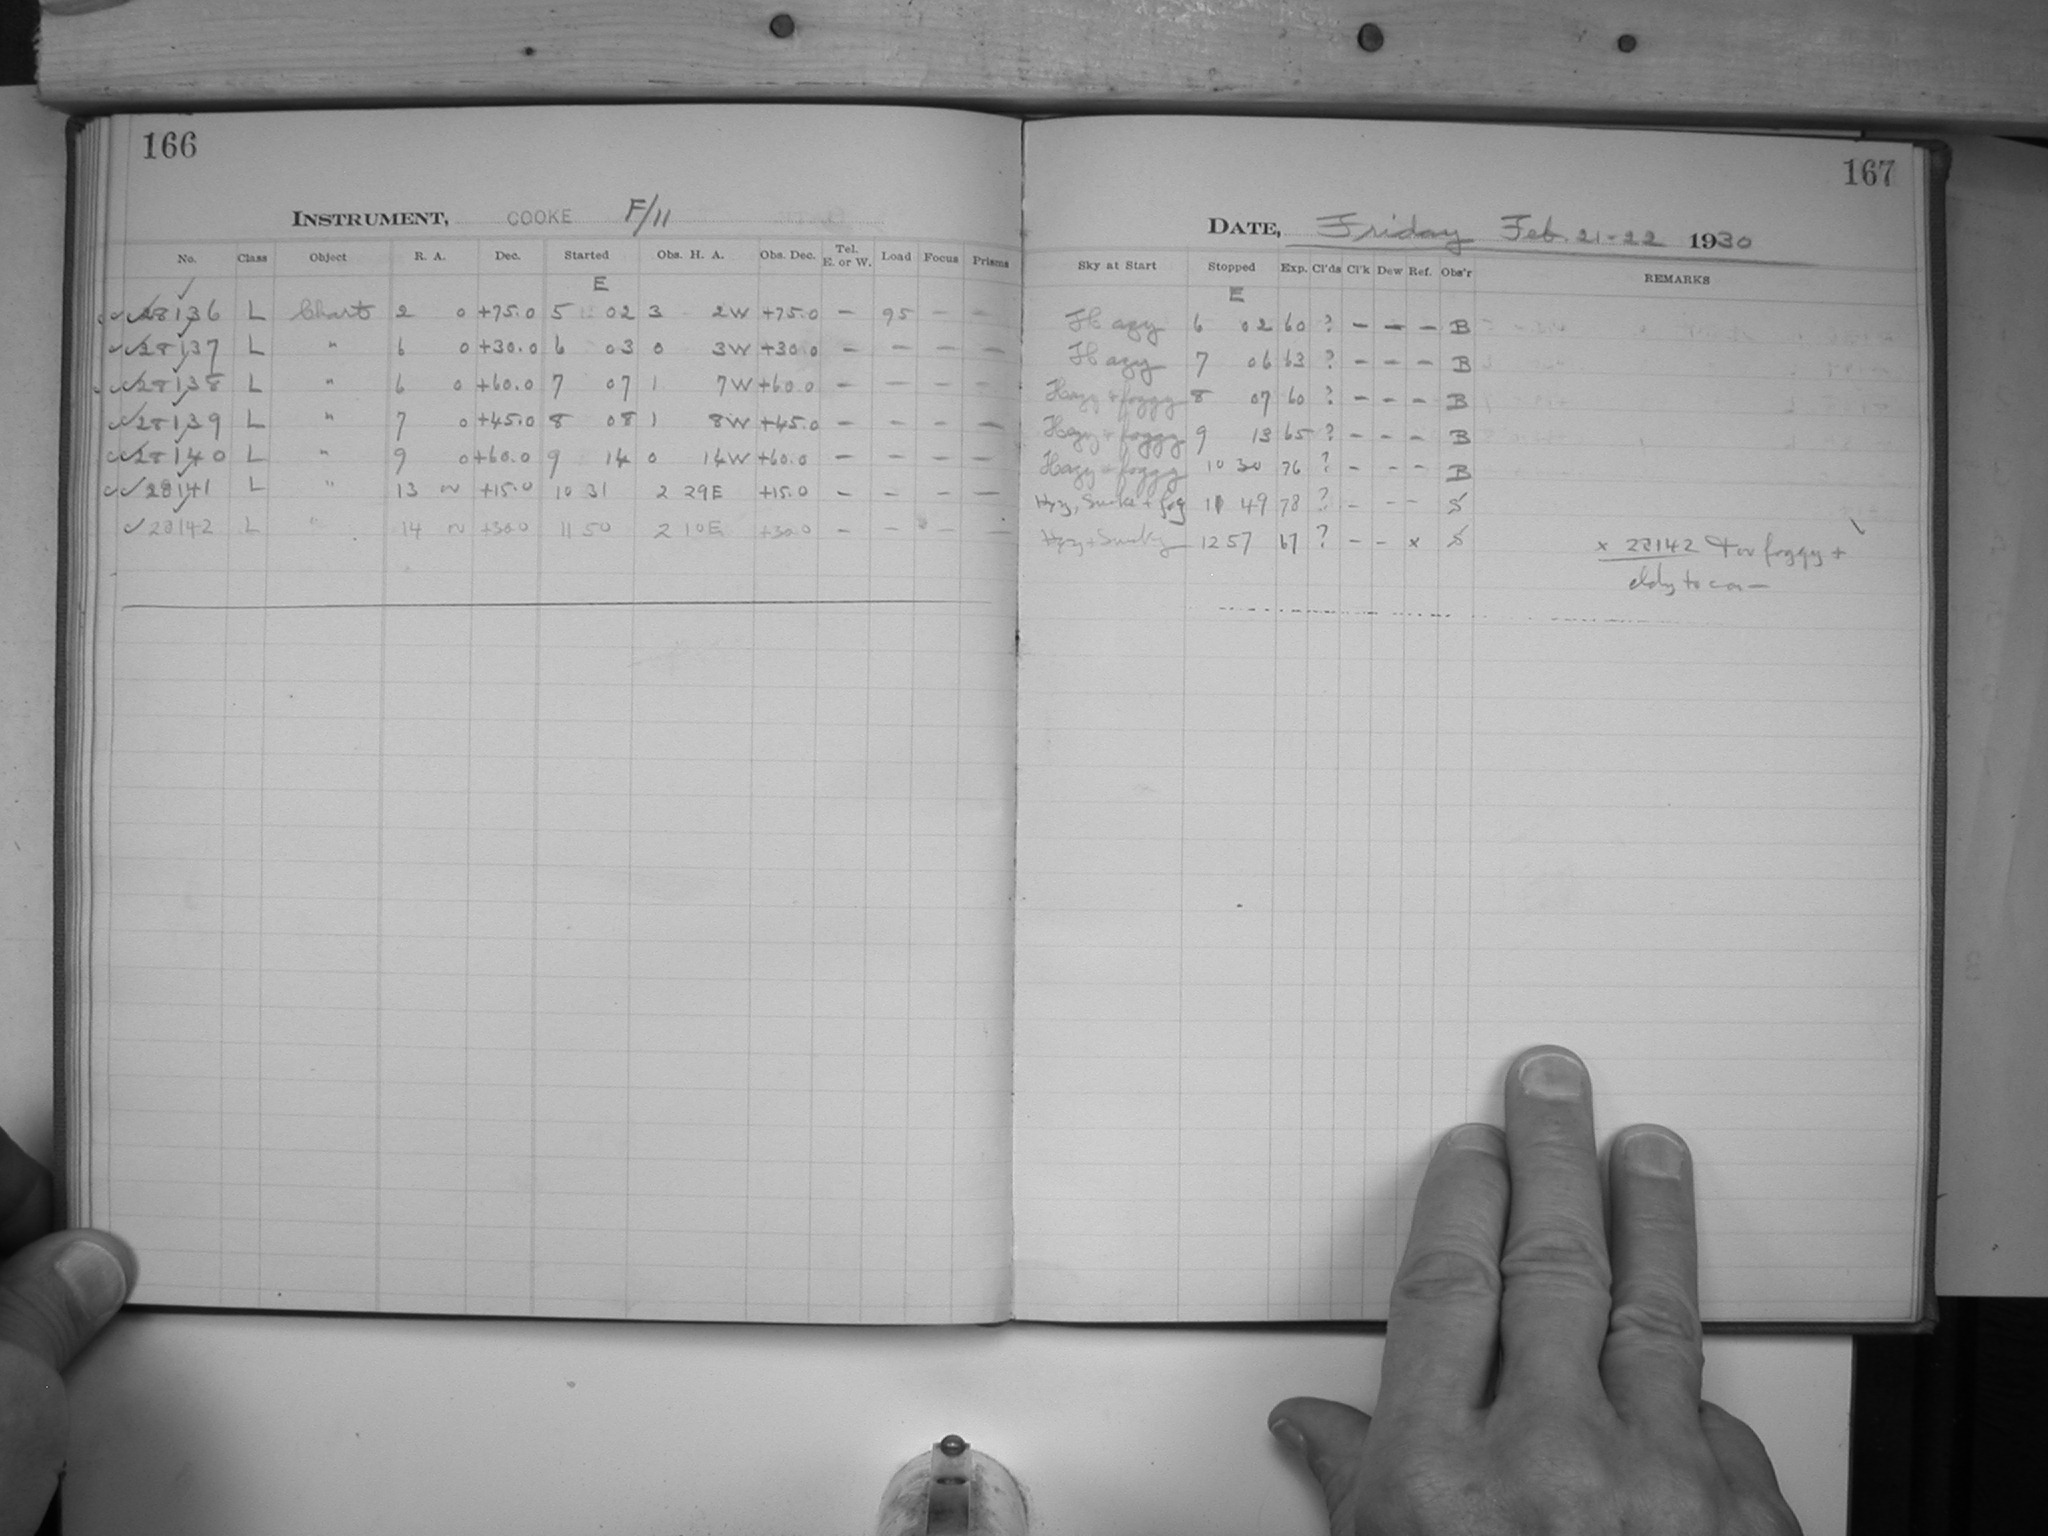 166
INSTRUMENT, COOKE F/11
No. Class Object R. A. Dec. Started Obs. H. A. Obs. Dec. Tel. E. or W. Load Focus Prisms
E
28136 L Chart 2 0 +75.0 5 02 3 2W +75.0 - 95 - -
28137 L " 6 0 +30.0 6 03 0 3W +30.0 - - - -
28138 L " 6 0 +60.0 7 07 1 7W +60.0 - - - -
28139 L " 7 0 +45.0 8 08 1 8W +45.0 - - - -
28140 L " 9 0 +60.0 9 14 0 14W +60.0 - - - -
28141 L " 13 +15.0 10 31 2 29E +15.0 - - - -
28142 L " 14 +30.0 11 50 2 10E +30.0 - - - -
167
DATE, Friday Feb. 21-22 1930
Sky at Start Stopped Exp. Cl'ds Cl'k Dew Ref. Obs'r REMARKS
E
Hazy 6 02 60 ? - - - B
Hazy 7 06 63 ? - - - B
Hazy + foggy 8 07 60 ? - - - B
Hazy + foggy 9 13 65 ? - - - B
Hazy + foggy 10 30 76 ? - - - B
Hazy, Smoke + fog 11 49 78 ? - - - S
Hazy + Smoky 12 57 67 ? - - x S
x 28142 foggy +
to